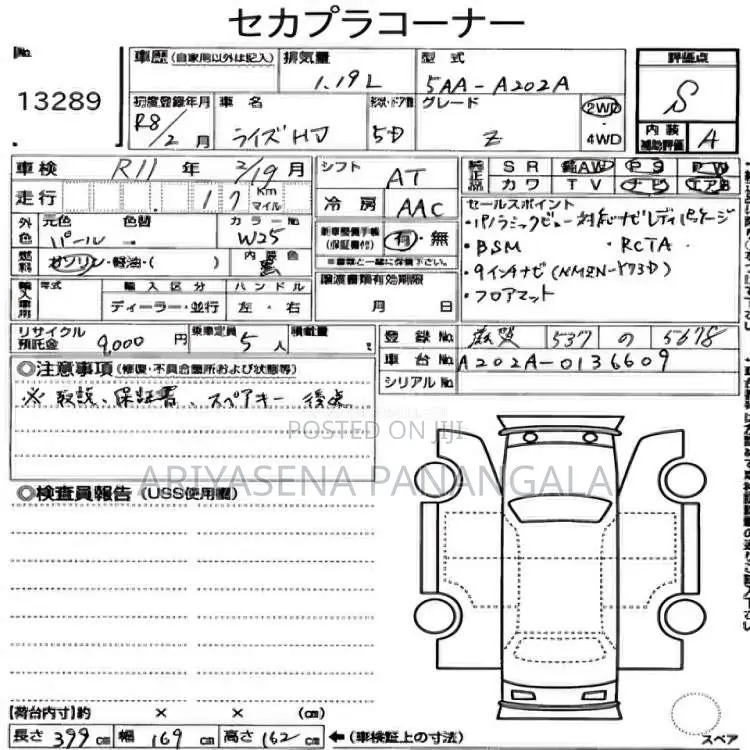 セカプラコーナー
No.
13289
車歴 (自家用以外は記入)
排気量
1.19L
型式
5AA-A202A
評価点
S
内装補助評価 A
初度登録年月
R8/2月
車名
ライズHV
形状・ドア数
5D
グレード
Z
2WD・4WD
車検 R11年 2/19月
走行 17 Km マイル
シフト AT
冷房 AAC
純正品 SR AW PS PW
カワ TV ナビ エアB
外色 元色 パール 色替 ー カラーNo. W25
燃料 ガソリン・軽油・( ) 内装色 黒
新車整備手帳(保証書付) 有・無
※書類と一緒に保管して下さい。
セールスポイント
・パノラミックビュー対応ナビレディパッケージ
・BSM ・RCTA ・
・9インチナビ(NMZN-Y73D)
・フロアマット
輸入車用 年式 輸入区分 ハンドル
ディーラー・並行 左・右
譲渡書類有効期限
月 日
リサイクル預託金 9,000円 乗車定員 5人 積載量
登録No. 滋賀 537 の 5678
車台No. A202A-0136609
シリアルNo.
◎注意事項(修復・不具合箇所および状態等)
※取説、保証書、スペアキー後送
POSTED ON JIJI
ARIYASENA PANANGALA
◎検査員報告 (USS使用欄)
【荷台内寸】約 × × (cm)
長さ 399 cm 幅 169 cm 高さ 162 cm ←(車検証上の寸法)
スペア